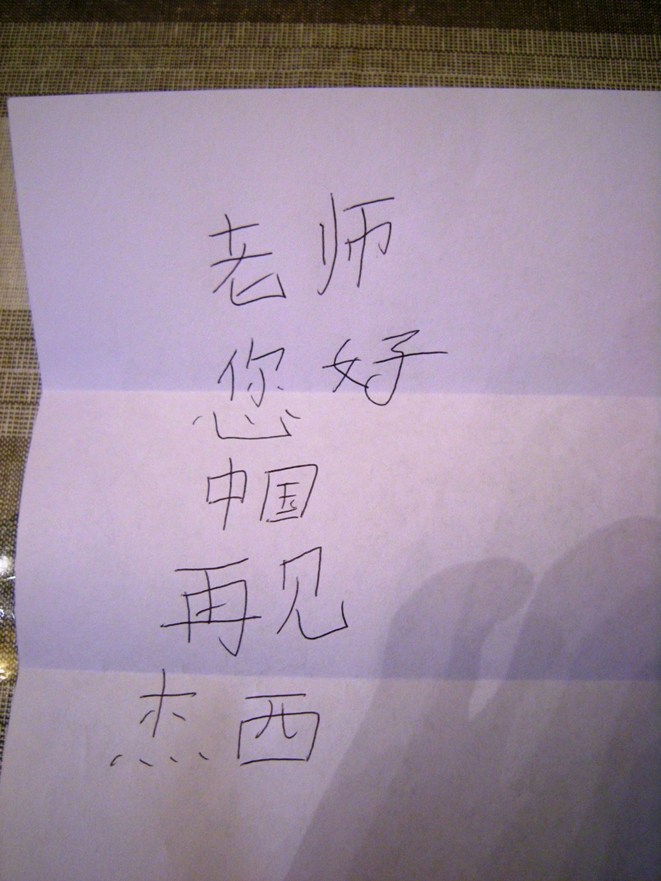 老师
您好
中国
再见
杰西